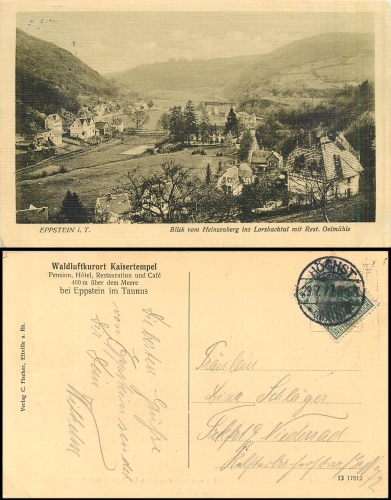 EPPSTEIN i. T.
Blick vom Heinzenberg ins Lorsbachtal mit Rest. Oelmühle
Waldluftkurort Kaisertempel
Pension, Hôtel, Restauration und Café
400 m über dem Meere
bei Eppstein im Taunus
Verlag C. Fischer, Eltville a. Rh.
Die besten Grüße
von Eppstein sendet
dir Dein
Wilhelm
HÖCHST
Fräulein
Lina Schläger
13 17812